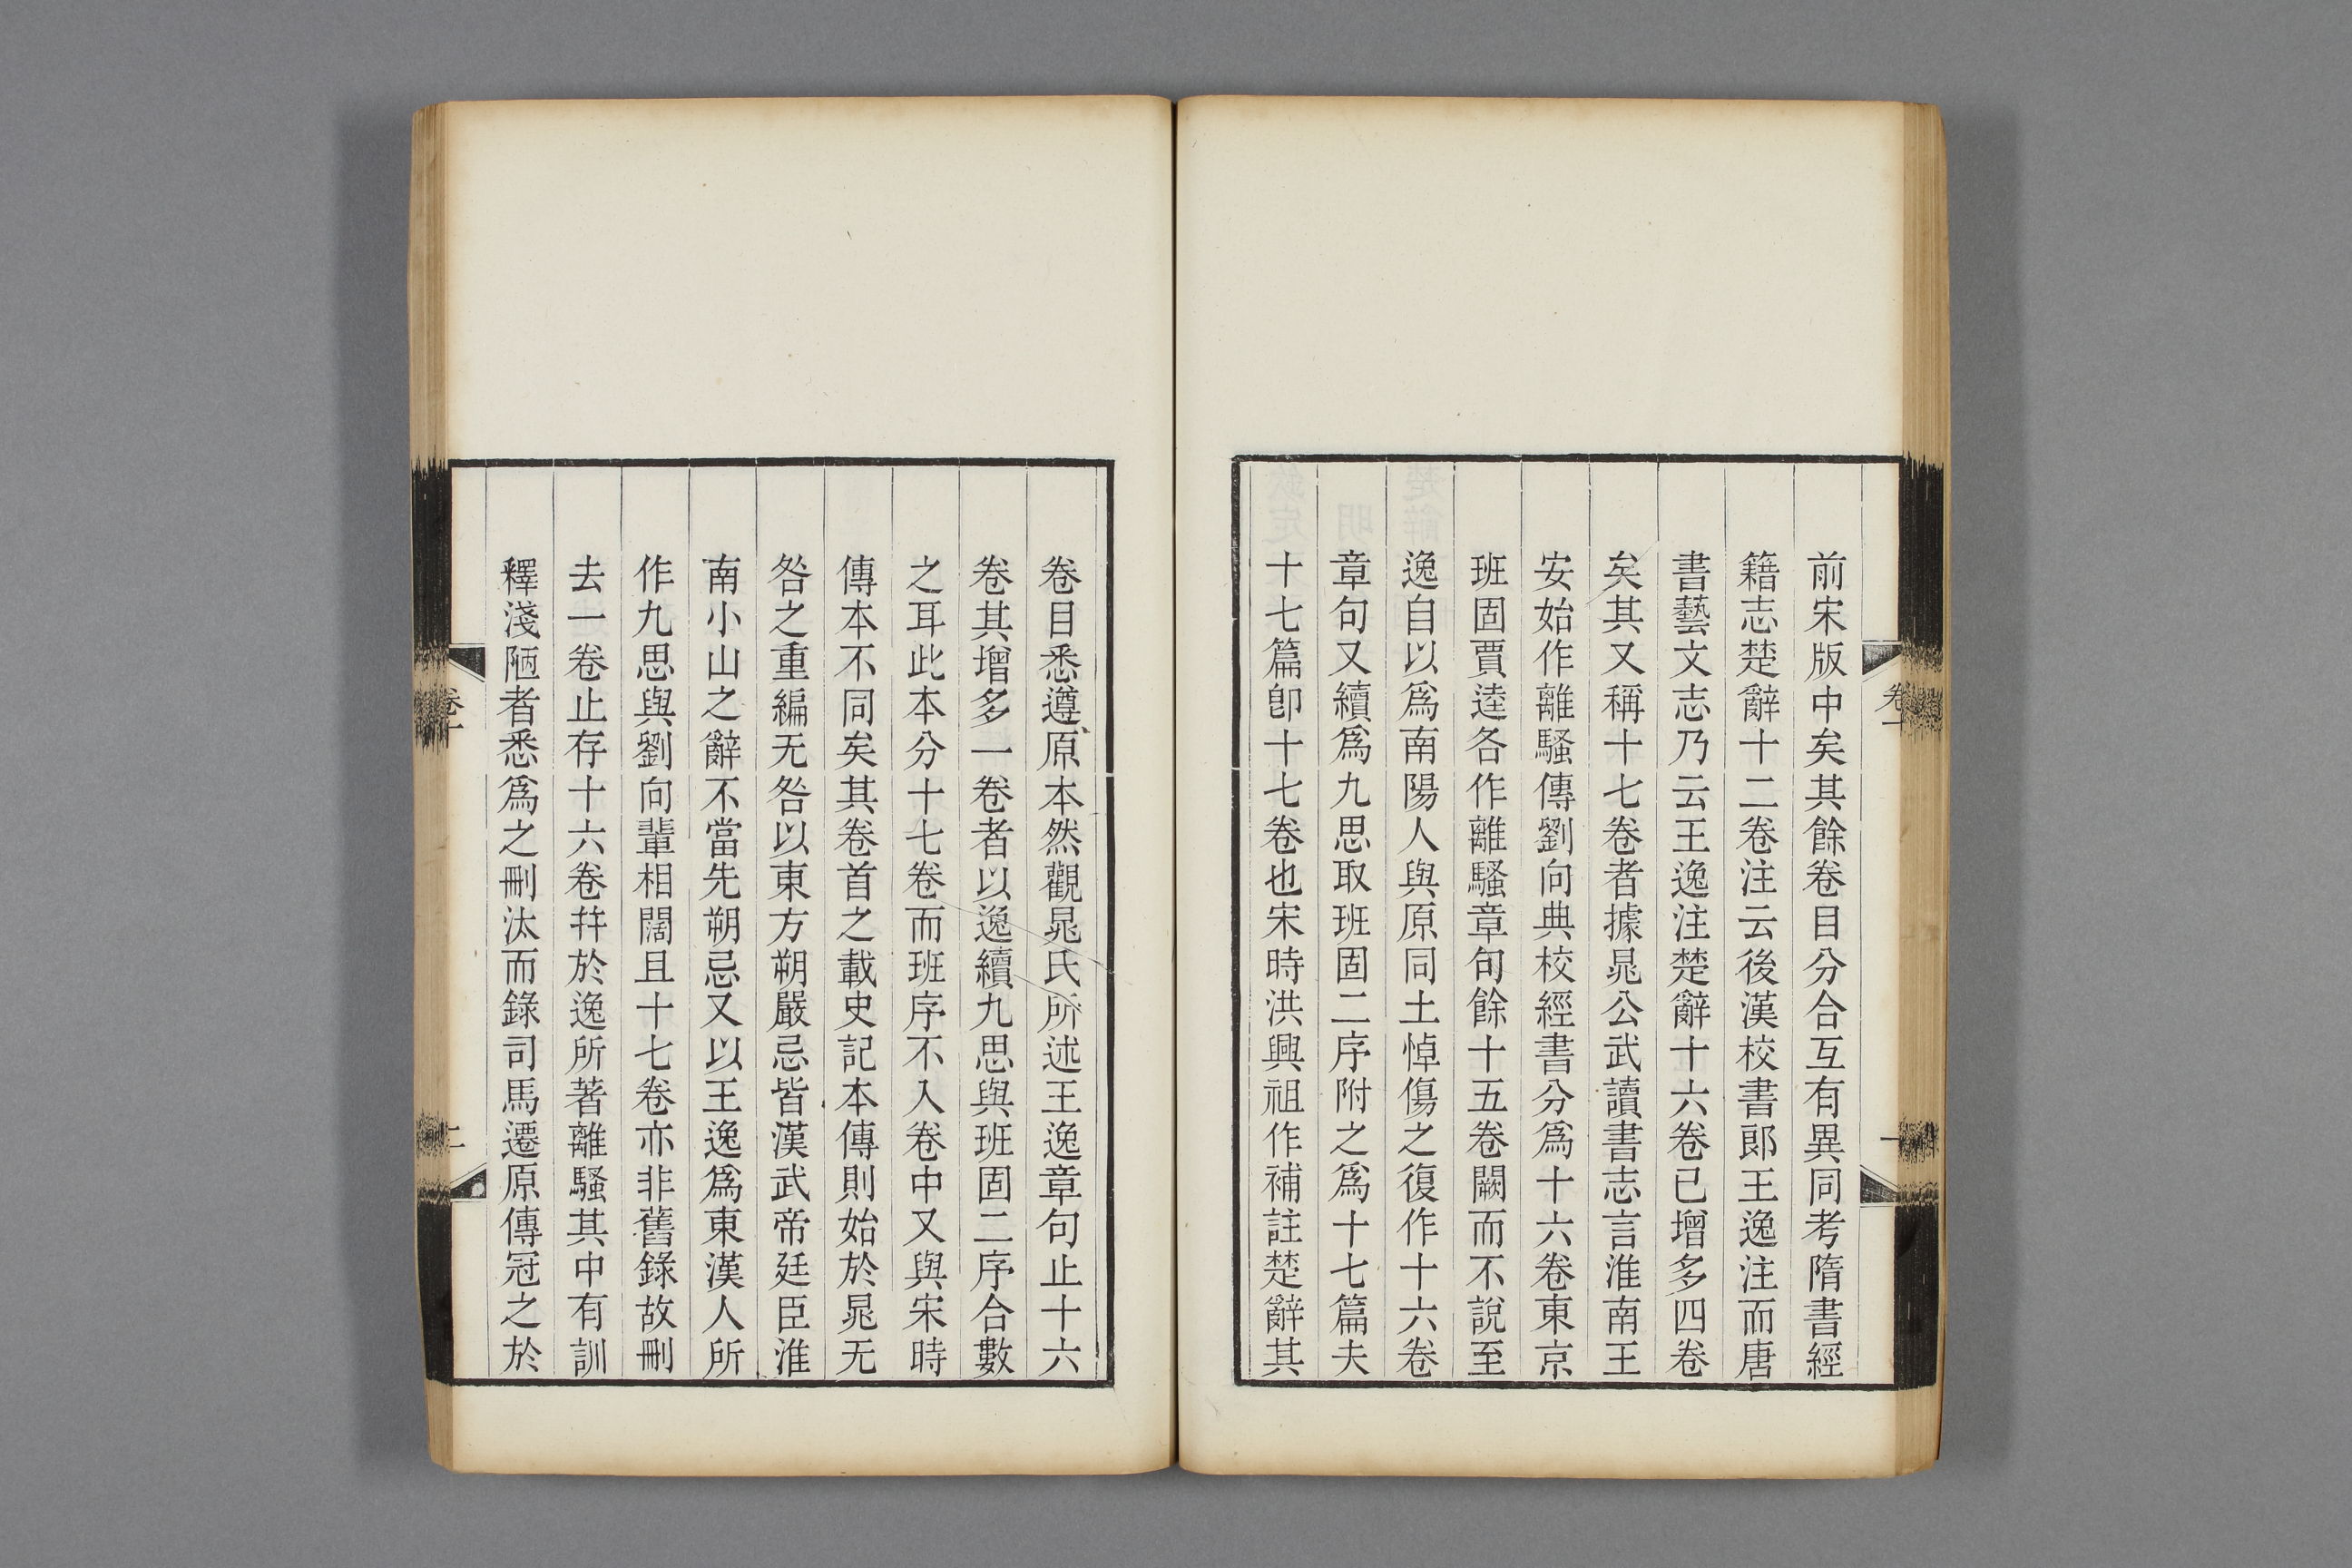 前宋版中矣其餘卷目分合互有異同考隋書經
籍志楚辭十二卷注云後漢校書郎王逸注而唐
書藝文志乃云王逸注楚辭十六卷已增多四卷
矣其又稱十七卷者據晁公武讀書志言淮南王
安始作離騷傳劉向典校經書分爲十六卷東京
班固賈逵各作離騷章句餘十五卷闕而不說至
逸自以爲南陽人與原同土悼傷之復作十六卷
章句又續爲九思取班固二序附之爲十七篇夫
十七篇卽十七卷也宋時洪興祖作補註楚辭其
卷目悉遵原本然觀晁氏所述王逸章句止十六
卷其增多一卷者以逸續九思與班固二序合數
之耳此本分十七卷而班序不入卷中又與宋時
傳本不同矣其卷首之載史記本傳則始於晁无
咎之重編无咎以東方朔嚴忌皆漢武帝廷臣淮
南小山之辭不當先朔忌又以王逸爲東漢人所
作九思與劉向輩相闊且十七卷亦非舊錄故刪
去一卷止存十六卷幷於逸所著離騷其中有訓
釋淺陋者悉爲之刪汰而錄司馬遷原傳冠之於